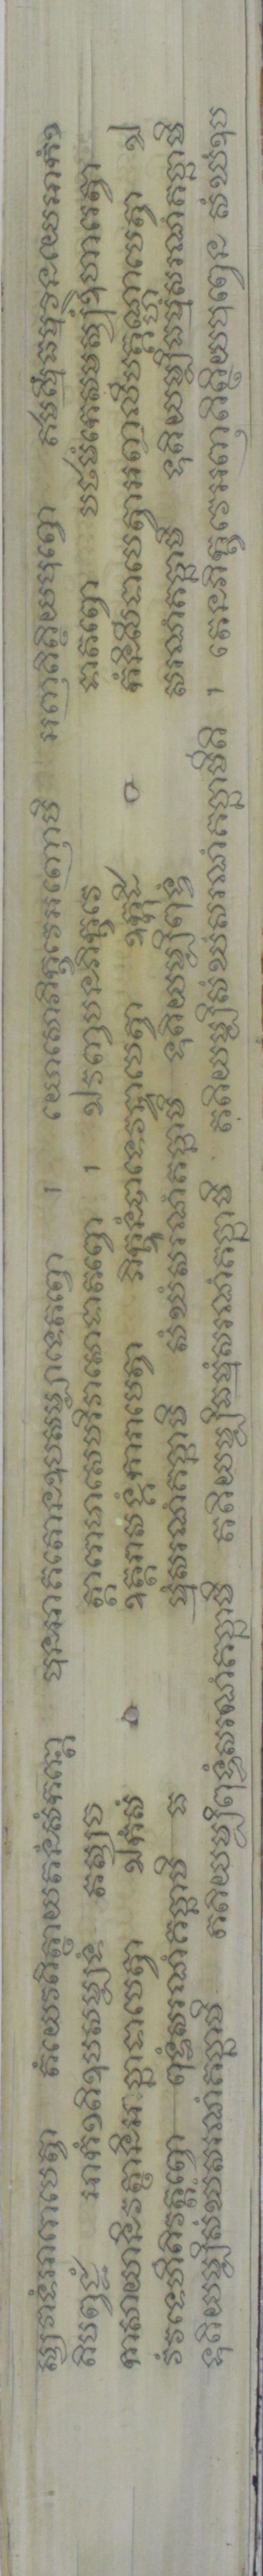 ស្សវាទំអារោបេត្វា តំយេវតិត្ថាយតនំសំកន្តោ បុនអាគតោនឧបសម្បាទេតព្វោ ។ យោសោភិក្ខវេអញោបិ អញតិត្ថិយបុព្វោ ឥមស្មឹធម្មវិនយេអាកំខ
តិបព្វជ្ជំ អាកំខតិឧបសម្បទំ តស្សច ត្តារោមាសេបរិវាសោទាតព្វោ ។ ឯវញ្ចបនភិក្ខវេ ទាតព្វោ បឋមំកេសមស្សុំឱហារេត្វា
កាសាយានិវត្ថានិអាច្ឆាទាបេត្វា ឯកំសំ ឧត្តរាសង្គំការាបេត្វា ភិក្ខូនំបាទេវន្ទាបេត្វា ឧក្កុដិ កំនិសីទាបេត្វាអញ្ជលឹបគ្គណ្ហាបេត្វា ឯ
វំវទេហីតិវត្តព្វោ ពុទ្ធំសរណំគច្ឆាមិ ធ ម្មំសរណំគច្ឆាមិ សំឃំសរណំគច្ឆាមិ ទុតិយម្បិពុទ្ធំ សរណំគច្ឆាមិ ទុតិយម្បិធម្មំសរណំគច្ឆាមិ
ទុតិយម្បិសំឃំសរណំគច្ឆាមិ តតិយម្បិពុទ្ធំសរណំគច្ឆាមិ តតិយម្បិធម្មំសរណំគច្ឆាមិ តតិយម្បិសំឃំសរណំគច្ឆាមីតិ ។ តេនភិក្ខវេអញតិត្ថិយបុព្វេន សំឃំឧប